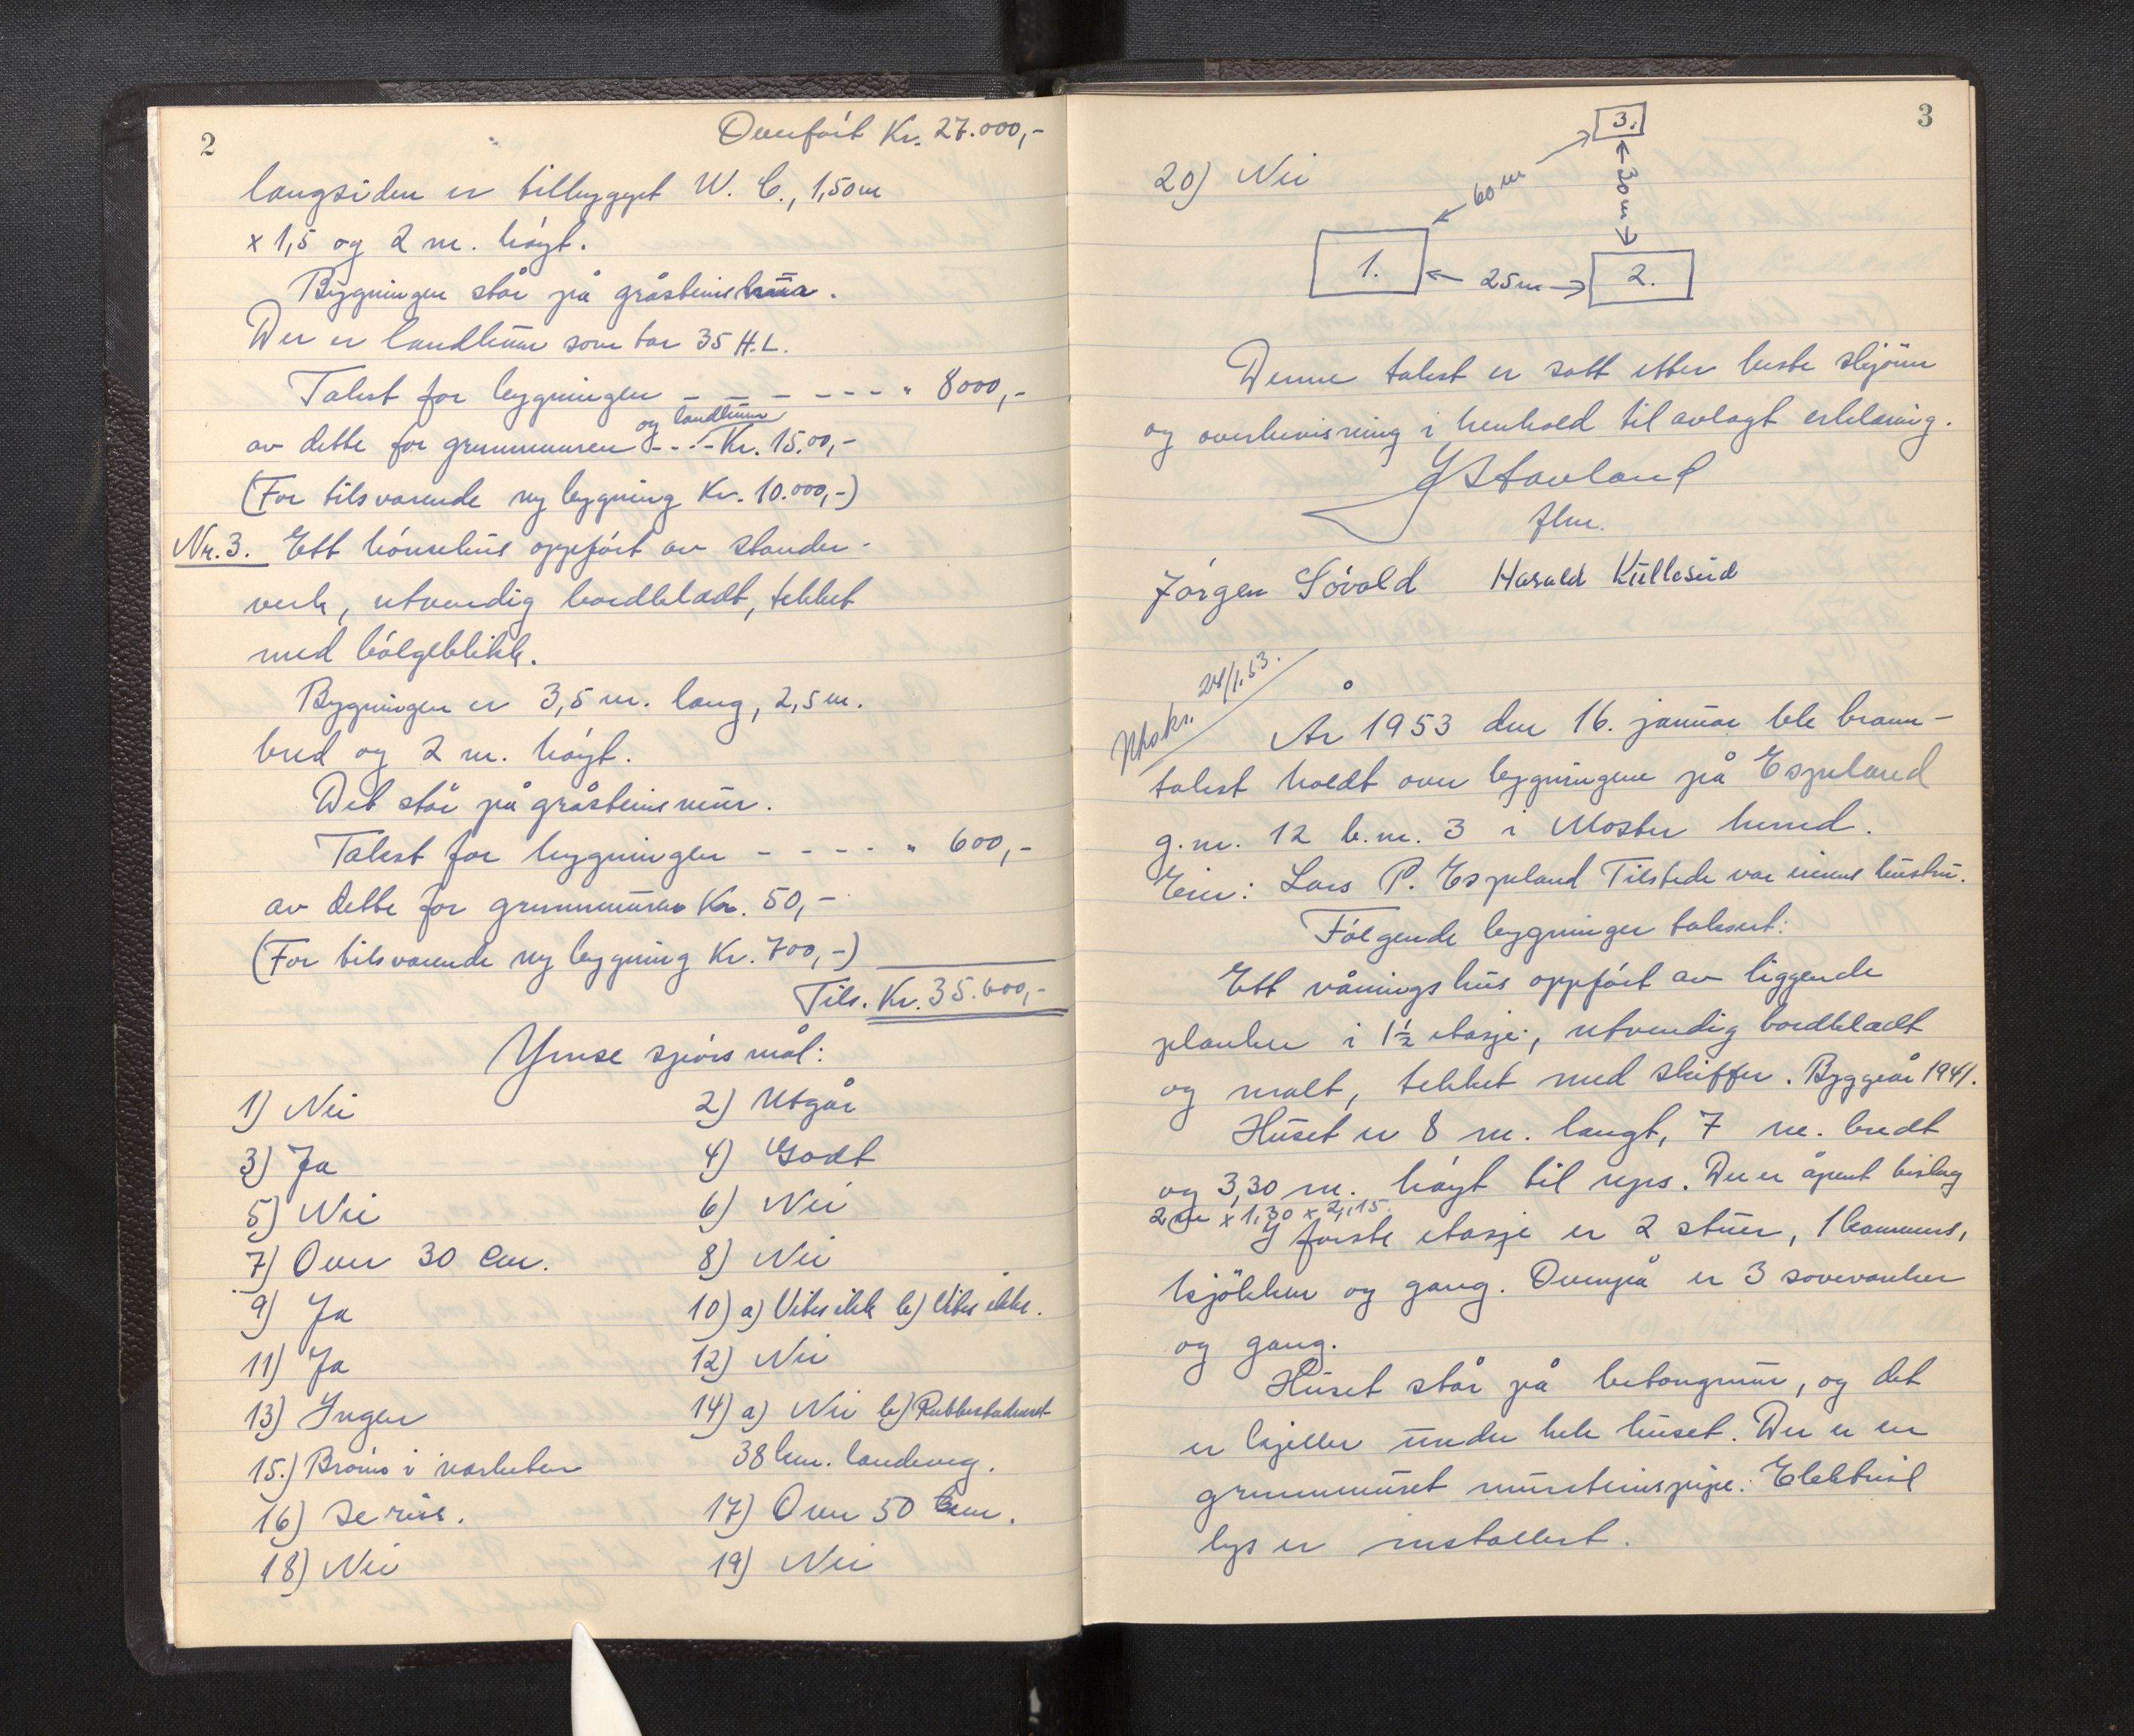 2
Overført Kr. 27.000,-
langsiden er tilbygget W. C., 1,50 m
x 1,5 og 2 m. høyt.
Bygningen står på gråsteins
Der er landkum som tar 35 H.L.
Takst for bygningen - - - - - - " 8000,-
og landkum
av dette for grunnmuren - - - Kr. 15.00,-
(For tilsvarende ny bygning Kr. 10.000,-)
Nr. 3. Ett hönsehus oppført av stender-
verk, utvendig bordkledt, tekket
med bølgeblikk.
Bygningen er 3,5 m. lang, 2,5 m.
bred og 2 m. høyt.
Det står på gråsteinsmur.
Takst for bygningen - - - - " 600,-
av dette for grunnmuren Kr. 50,-
(For tilsvarende ny bygning Kr. 700,-)
Tils. Kr. 35.600,-
Ymse spörsmål:
1) Nei 2) Utgår
3) Ja 4) Godt
5) Nei 6) Nei
7) Over 30 cm. 8) Nei
9) Ja 10) a) Vites ikke b) Vites ikke.
11) Ja 12) Nei
13) Ingen 14) a) Nei b) Rubbestadneset
15.) Brønn i nærheten 38 km. landeveg.
16) Se riss. 17) Over 50 cm.
18) Nei 19) Nei
3
20) Nei
3.
60 m
30 m
1.
25 m
2.
Denne takst er satt etter beste skjönn
og overbevisning i henhold til avlagt erklæring.
J Stavland
flm.
Jørgen Løvold Harald Kulleseid
Utskr. 24/1.53.
År 1953 den 16. januar ble brann-
takst holdt over bygningene på Espeland
g.nr. 12 b.nr. 3 i Moster herred.
Eier: Lars P. Espeland Tilstede var eierens hustru.
Følgende bygninger taksert:
Ett våningshus oppført av liggende
planker i 1½ etasje, utvendig bordkledt
og malt, tekket med skiffer. Byggeår 1941.
Huset er 8 m. langt, 7 m. bredt
og 3,30 m. høyt til reps. Der er åpent bislag
2 m x 1,30 x 2,15.
I første etasje er 2 stuer, 1 kammers,
kjökken og gang. Ovenpå er 3 soveværelser
og gang.
Huset står på betongmur, og det
er kjeller under hele huset. Der er en
grunnmuret mursteinspipe. Elektrisk
lys er installert.